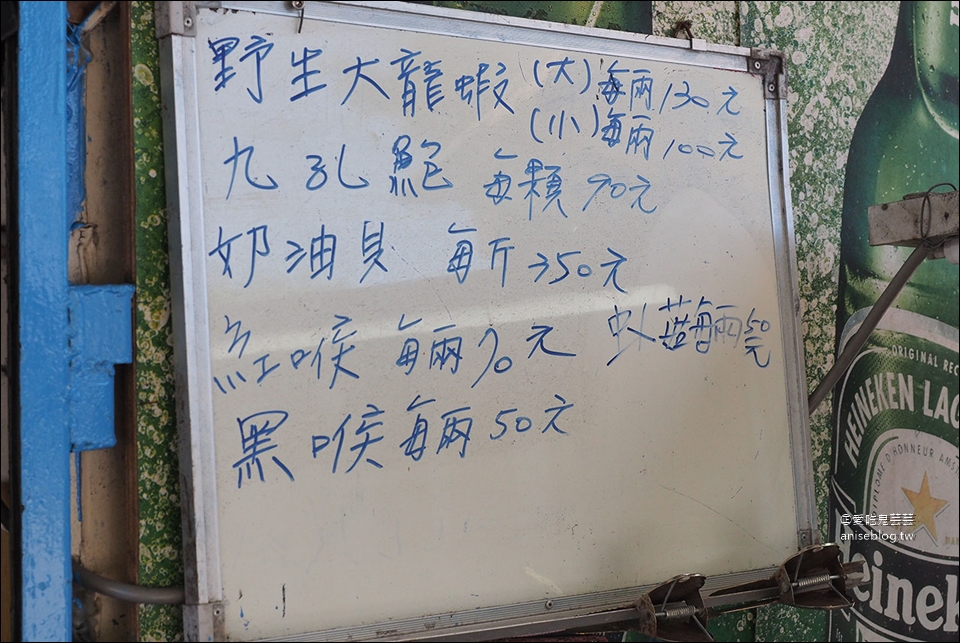 野生大龍蝦(大)每兩130元
(小)每兩100元
九孔鮑 每顆90元
奶油貝 每斤350元
紅喉 每兩90元
每兩50元
黑喉每兩50元
ORIGINAL REC
HEINEKEN LAG
DIPLOME D'HONNEUR AMS
eineke
@愛吃鬼芸芸
aniseblog.tw